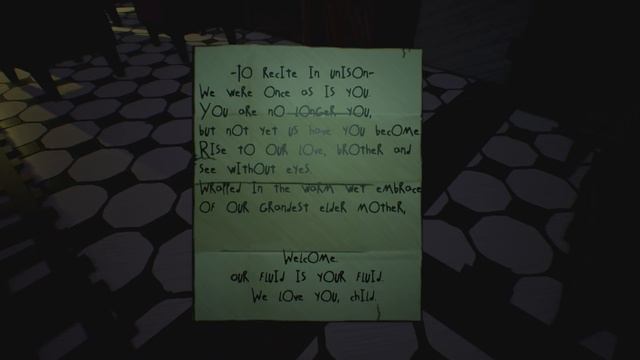 -To Recite In unison-
We weRe Once as Is you.
You aRe no LonGeR you,
but not yet us have you become.
RIse to OuR Love, bRotheR and
see wIthOut eyes.
WRaPPed In the waRm wet embRace
Of OuR GRandest eldeR MotheR,
WelcOme.
OuR FluId Is YouR Fluid.
We lOve YOu, chIld.